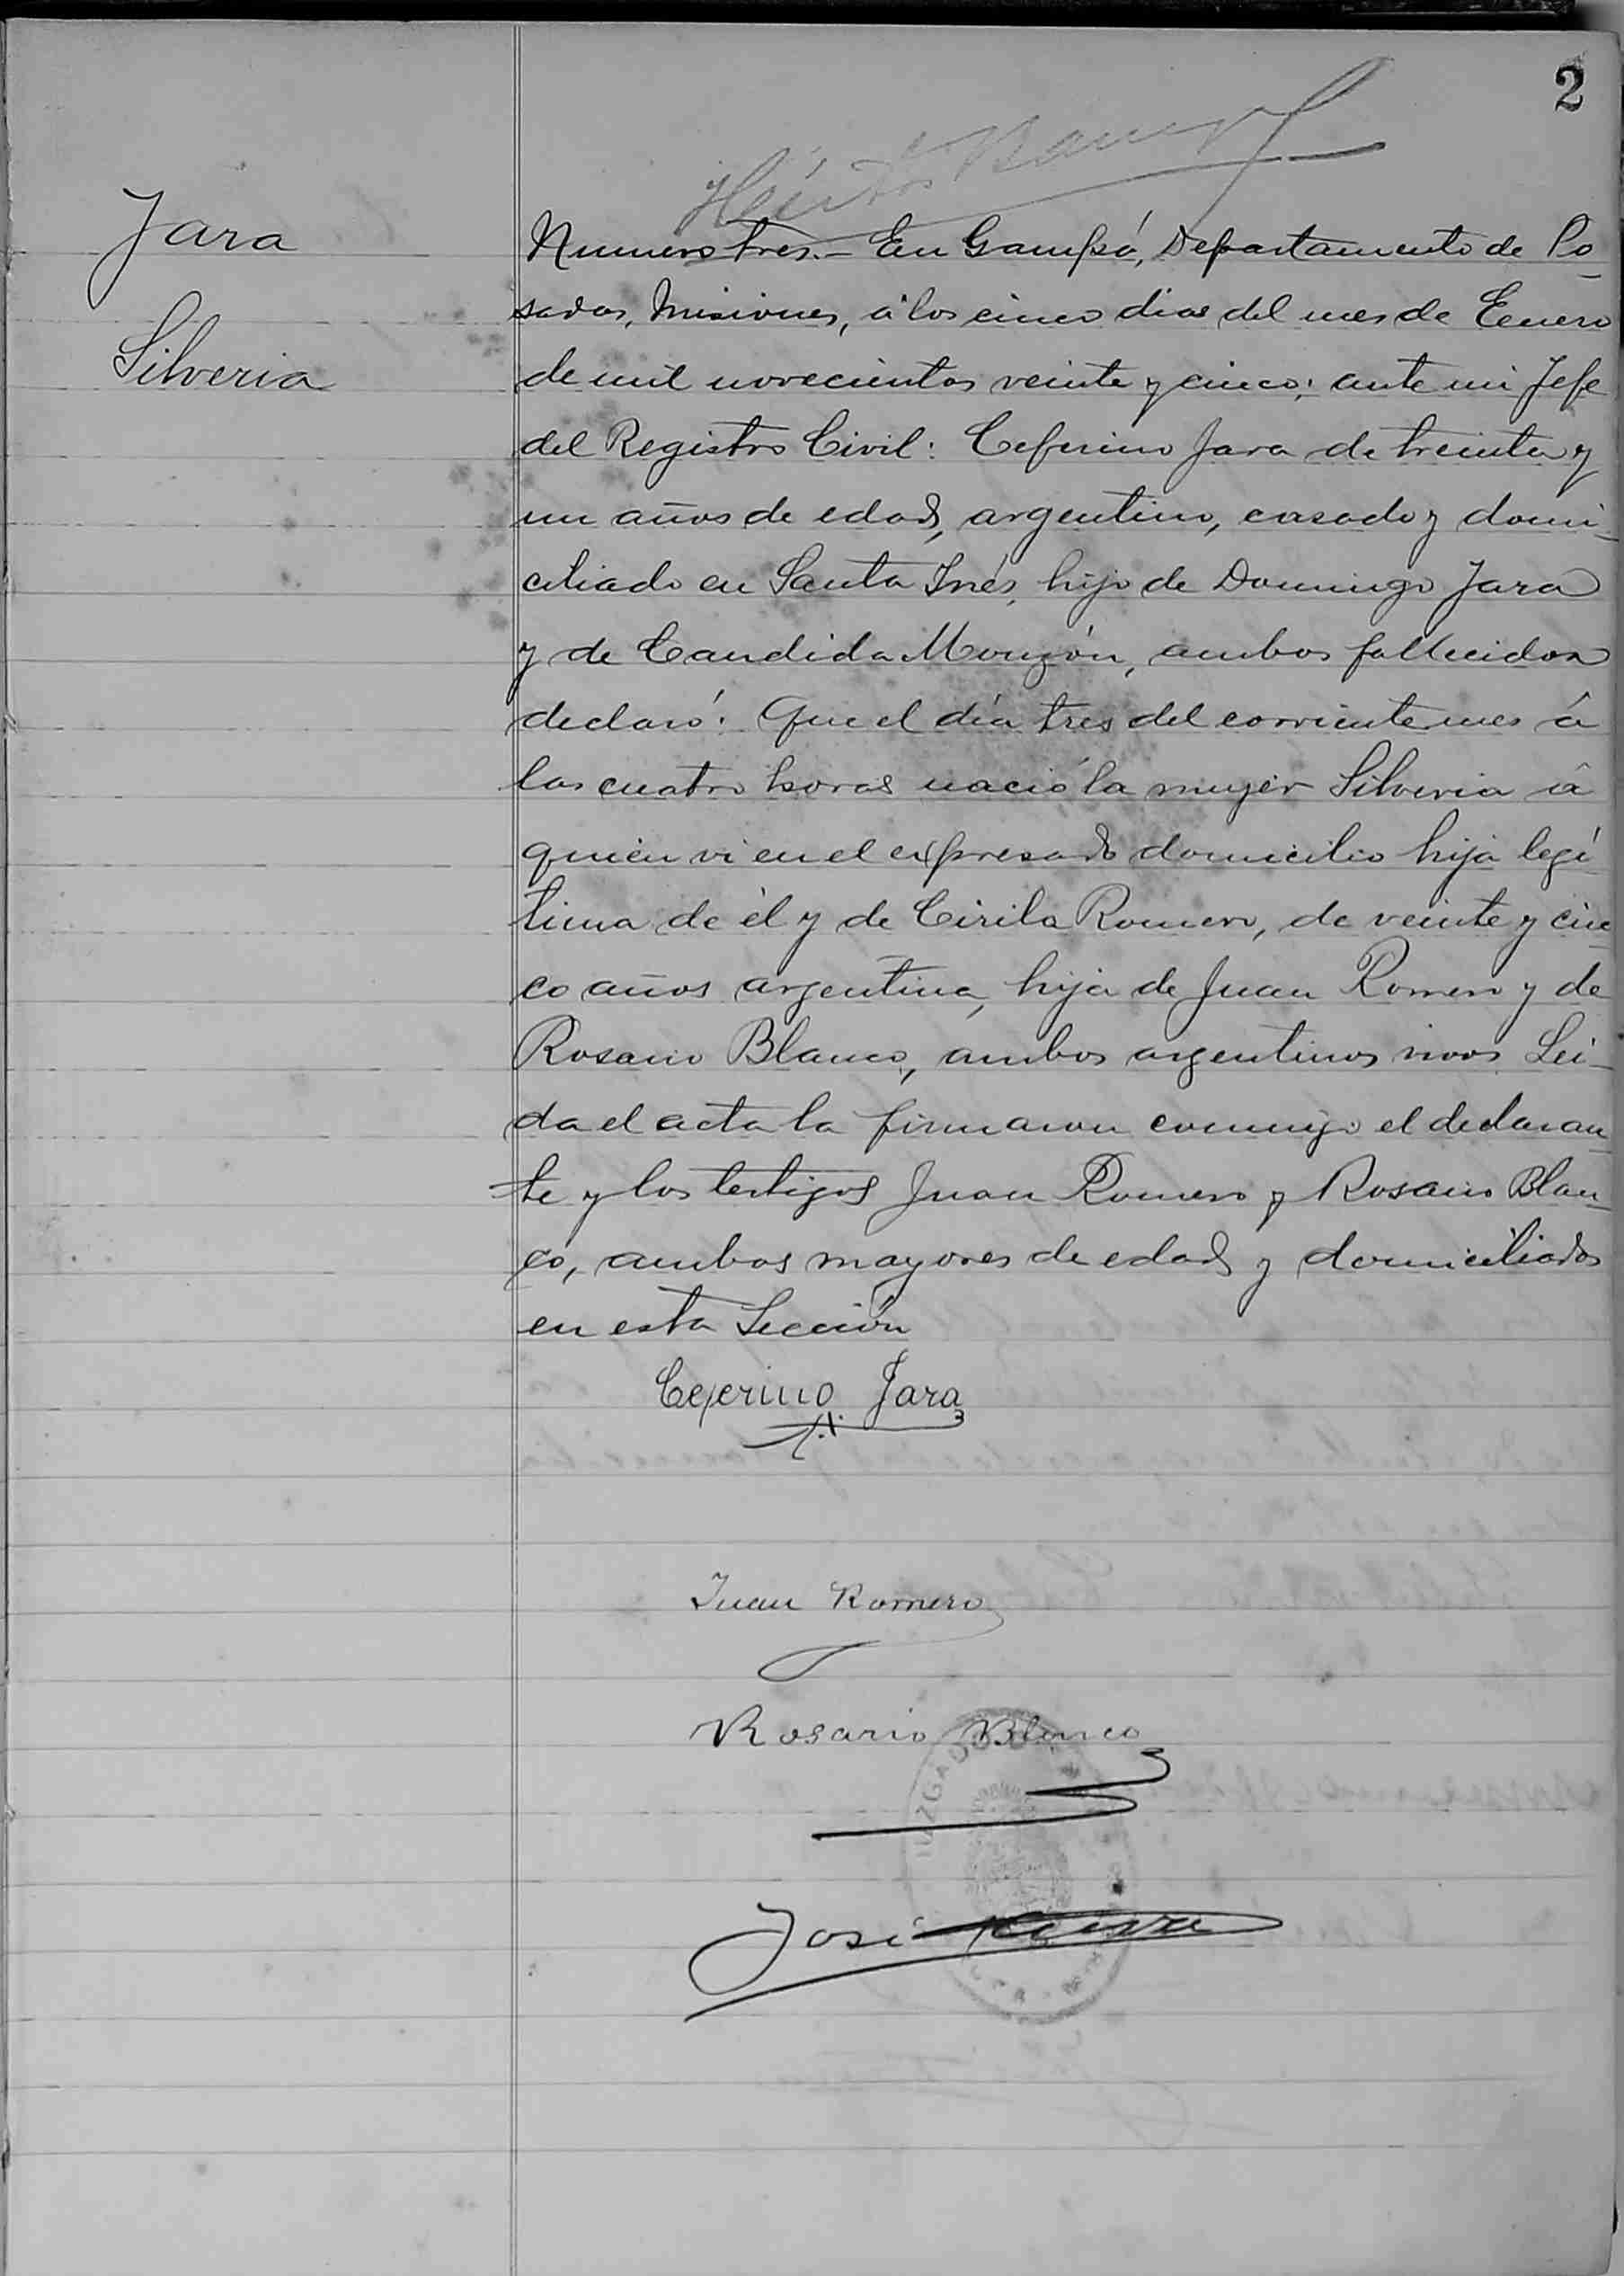 2
Jara
Silveria
Numero tres.- En Garupá, Departamento de Po-
sadas, Misiones, á los cinco dias del mes de Enero
de mil novecientos veinte y cinco; ante mi Jefe
del Registro Civil: Ceferino Jara de treinta y
un años de edad, argentino, casado y domi-
ciliado en Santa Inés, hijo de Domingo Jara
y de Candida Monzón, ambos fallecidos
declaró: Que el día tres del corriente mes á
las cuatro horas nació la mujer Silveria á
quien vi en el expresado domicilio hija legí
tima de él y de Cirila Romero, de veinte y cin-
co años argentina, hija de Juan Romero y de
Rosario Blanco, ambos argentinos vivos Lei-
da el acta la firmaron conmigo el declaran-
te y los testigos Juan Romero y Rosario Blan-
co, ambos mayores de edad y domiciliados
en esta Sección
Ceferino Jara
Juan Romero
Rosario Blanco
JUZGADO
José